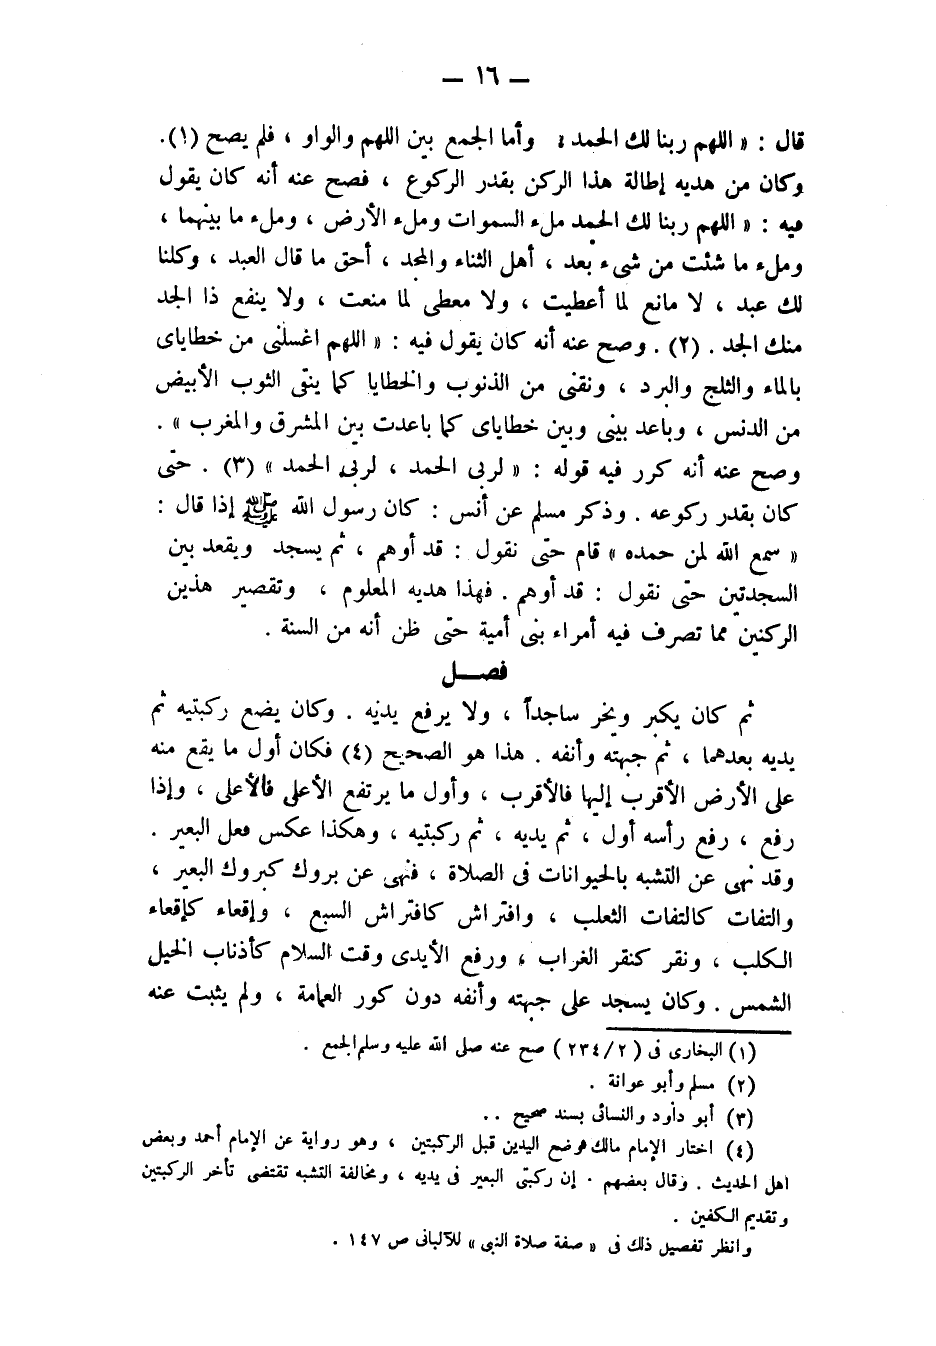 — ١٦ —
قال : « اللهم ربنا لك الحمد » وأما الجمع بين اللهم والواو ، فلم يصح (١).
وكان من هديه إطالة هذا الركن بقدر الركوع ، فصح عنه أنه كان يقول
فيه : « اللهم ربنا لك الحمد ملء السموات وملء الأرض ، وملء ما بينهما ،
وملء ما شئت من شىء بعد ، أهل الثناء والمجد ، أحق ما قال العبد ، وكلنا
لك عبد ، لا مانع لما أعطيت ، ولا معطى لما منعت ، ولا ينفع ذا الجد
منك الجد . (٢) . وصح عنه أنه كان يقول فيه : « اللهم اغسلنى من خطاياى
بالماء والثلج والبرد ، ونقنى من الذنوب والخطايا كما ينقى الثوب الأبيض
من الدنس ، وباعد بينى وبين خطاياى كما باعدت بين المشرق والمغرب » .
وصح عنه أنه كرر فيه قوله : « لربى الحمد ، لربى الحمد » (٣) . حتى
كان بقدر ركوعه . وذكر مسلم عن أنس : كان رسول الله ﷺ إذا قال :
« سمع الله لمن حمده » قام حتى نقول : قد أوهم ، ثم يسجد ويقعد بين
السجدتين حتى نقول : قد أوهم . فهذا هديه المعلوم ، وتقصير هذين
الركنين مما تصرف فيه أمراء بنى أمية حتى ظن أنه من السنة .
فصـــل
ثم كان يكبر ويخر ساجداً ، ولا يرفع يديه . وكان يضع ركبتيه ثم
يديه بعدهما ، ثم جبهته وأنفه . هذا هو الصحيح (٤) فكان أول ما يقع منه
على الأرض الأقرب إليها فالأقرب ، وأول ما يرتفع الأعلى فالأعلى ، وإذا
رفع ، رفع رأسه أول ، ثم يديه ، ثم ركبتيه ، وهكذا عكس فعل البعير .
وقد نهى عن التشبه بالحيوانات فى الصلاة ، فنهى عن بروك كبروك البعير ،
والتفات كالتفات الثعلب ، وافتراش كافتراش السبع ، وإقعاء كإقعاء
الكلب ، ونقر كنقر الغراب ، ورفع الأيدى وقت السلام كأذناب الخيل
الشمس . وكان يسجد على جبهته وأنفه دون كور العمامة ، ولم يثبت عنه
(١) البخارى فى ( ٢/ ٢٣٤ ) صح عنه صلى الله عليه وسلم الجمع .
(٢) مسلم وأبو عوانة .
(٣) أبو داود والنسائى بسند صحيح . .
(٤) اختار الإمام مالك وضع اليدين قبل الركبتين ، وهو رواية عن الإمام أحمد وبعض
اهل الحديث . وقال بعضهم . إن ركبتى البعير فى يديه ، ومخالفة التشبه تقتضى تأخر الركبتين
وتقديم الكفين .
وانظر تفصيل ذلك فى « صفة صلاة النبى » للألبانى ص ١٤٧ .